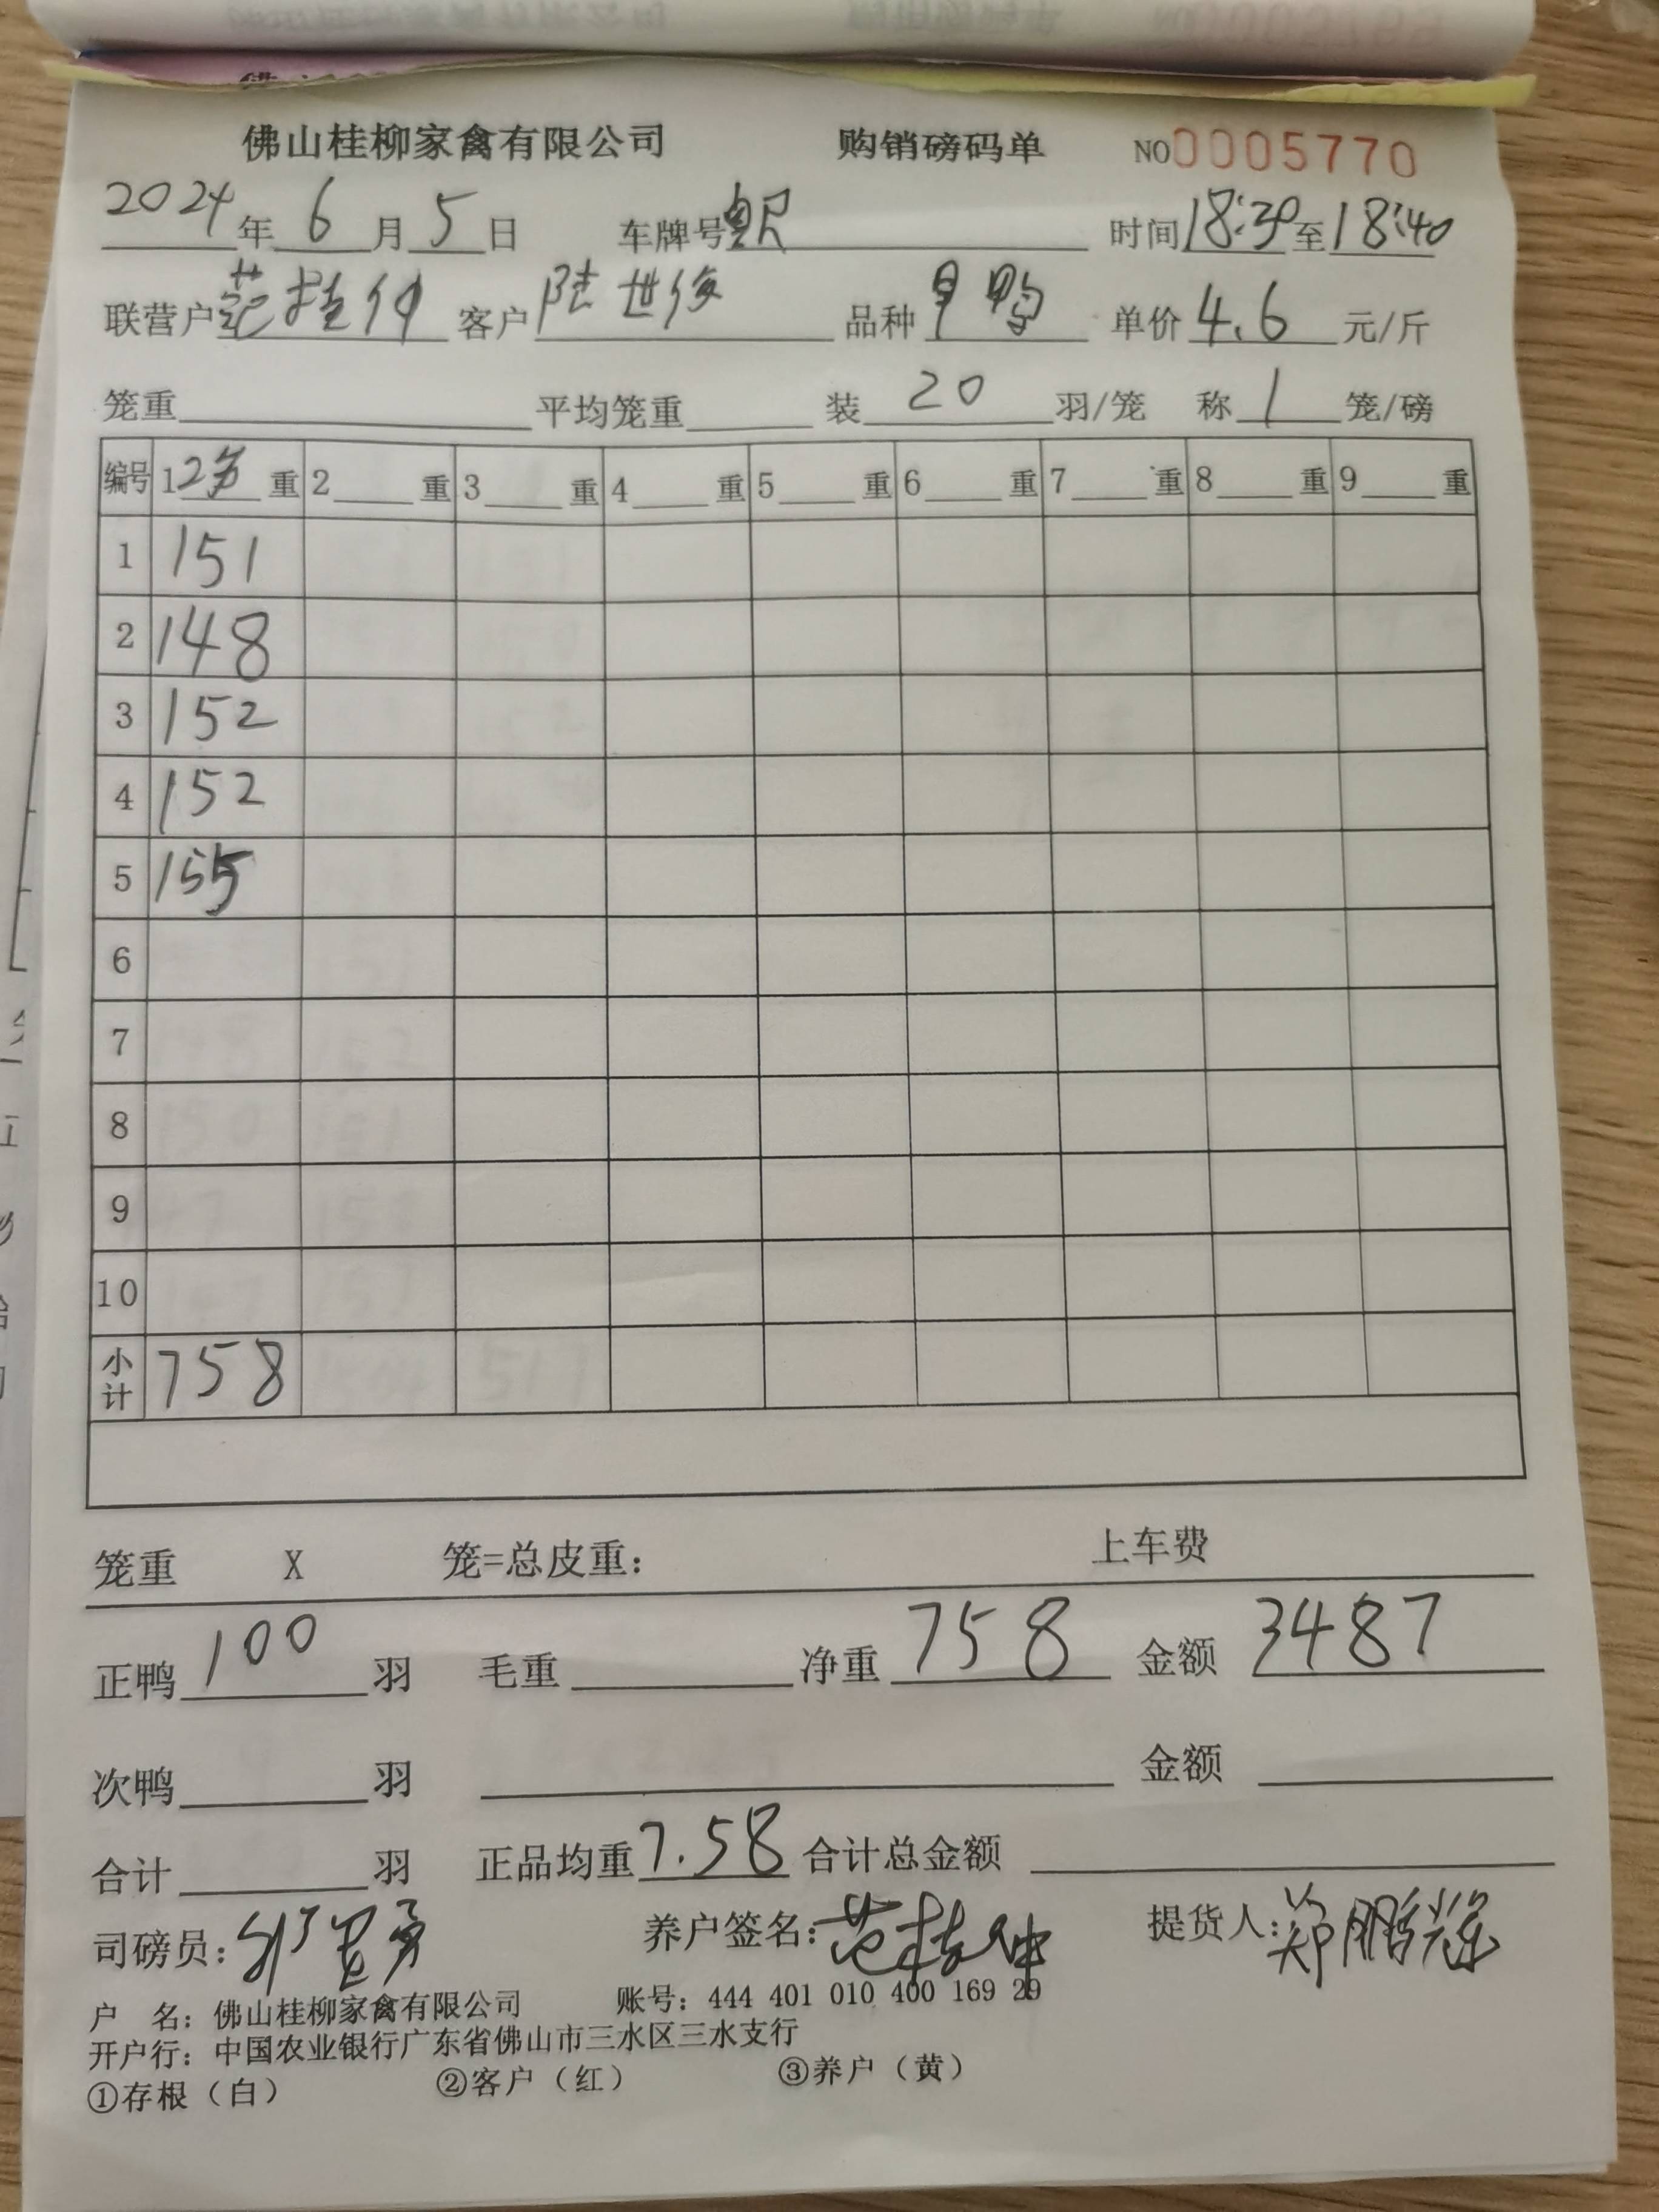 佛山桂柳家禽有限公司 购销磅码单 NO0005770
2024年6月5日 车牌号 时间18:30至18:40
联营户范桂仲 客户陆世俊 品种早鸭 单价4.6元/斤
笼重 平均笼重 装20羽/笼 称1笼/磅
编号 1 重 2 重 3 重 4 重 5 重 6 重 7 重 8 重 9 重
1 151
2 148
3 152
4 152
5 155
6
7
8
9
10
小计 758
笼重 X 笼=总皮重： 上车费
正鸭100羽 毛重 净重758 金额3487
次鸭 羽 金额
合计 羽 正品均重7.58 合计总金额
司磅员： 养户签名：范桂仲 提货人：郑鹏辉
户 名：佛山桂柳家禽有限公司 账号：444 401 010 400 169 29
开户行：中国农业银行广东省佛山市三水区三水支行
①存根（白） ②客户（红） ③养户（黄）